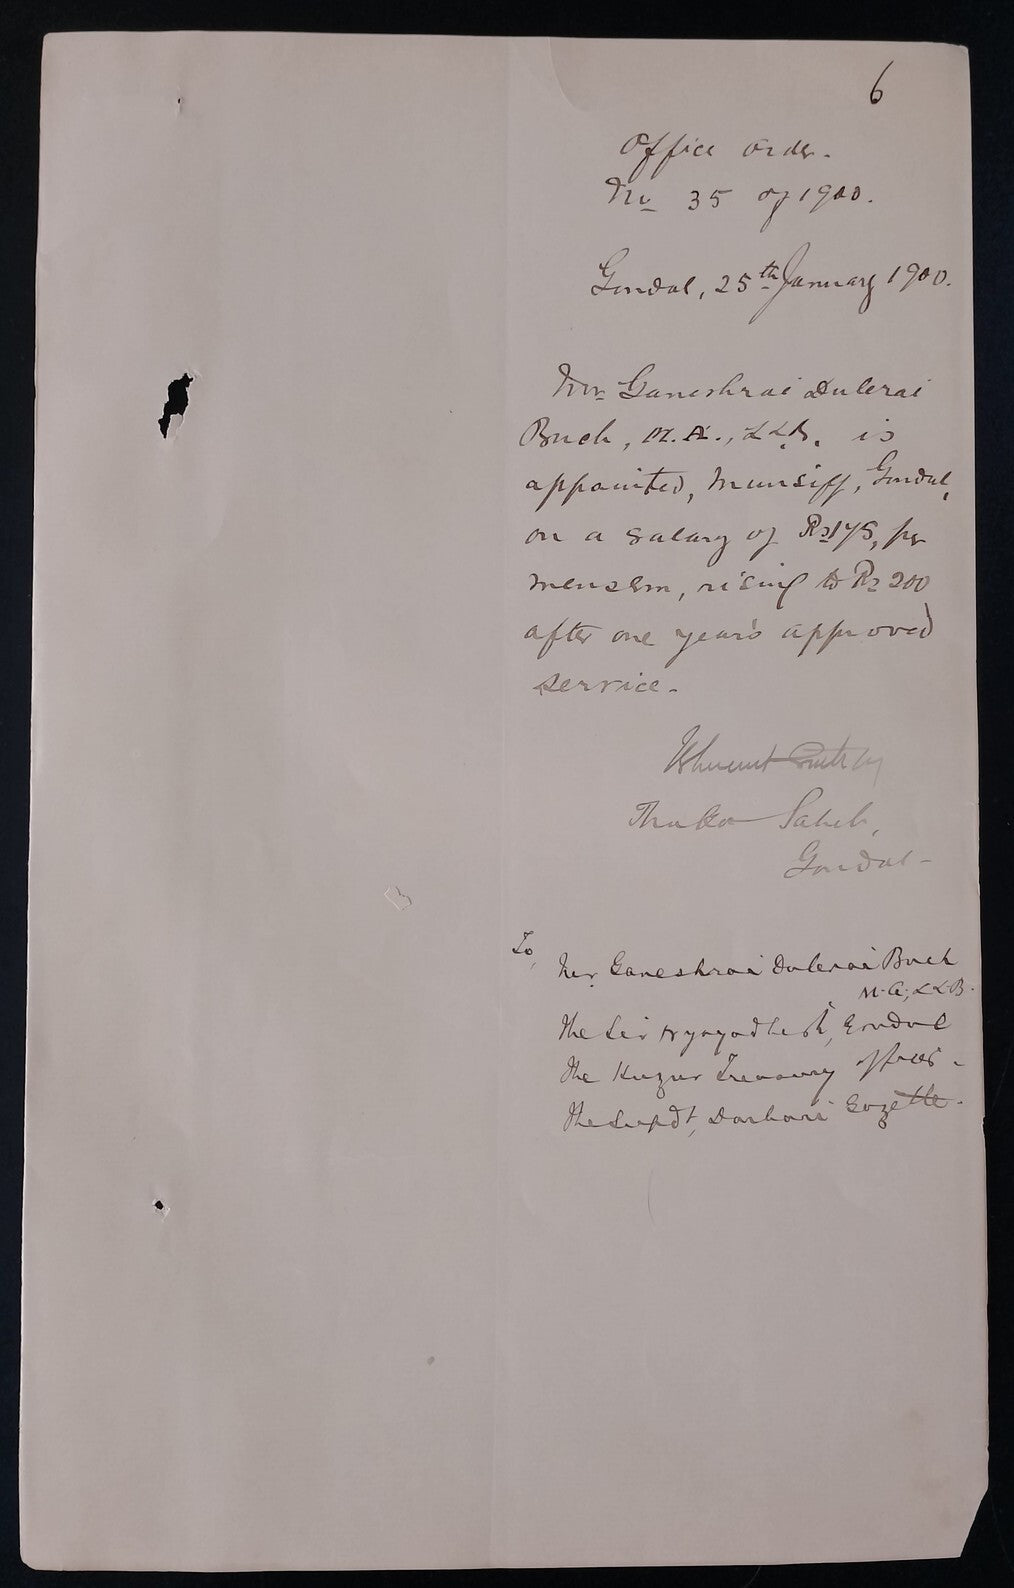 6
Office Order.
No 35 of 1900.
Gondal, 25th January 1900.
Mr. Ganeshrai Dulerai
Buch, M.A., LL.B. is
appointed, Munsiff, Gondal,
on a salary of Rs 175, per
mensem, rising to Rs 200
after one year's approved
service.
Thakor Saheb,
Gondal
To,
Mr. Ganeshrai Dulerai Buch
M.A., LL.B.
The Sir Nyayadhish, Gondal
The Huzur Treasury Officer.
The Supdt, Darbari Gazette.